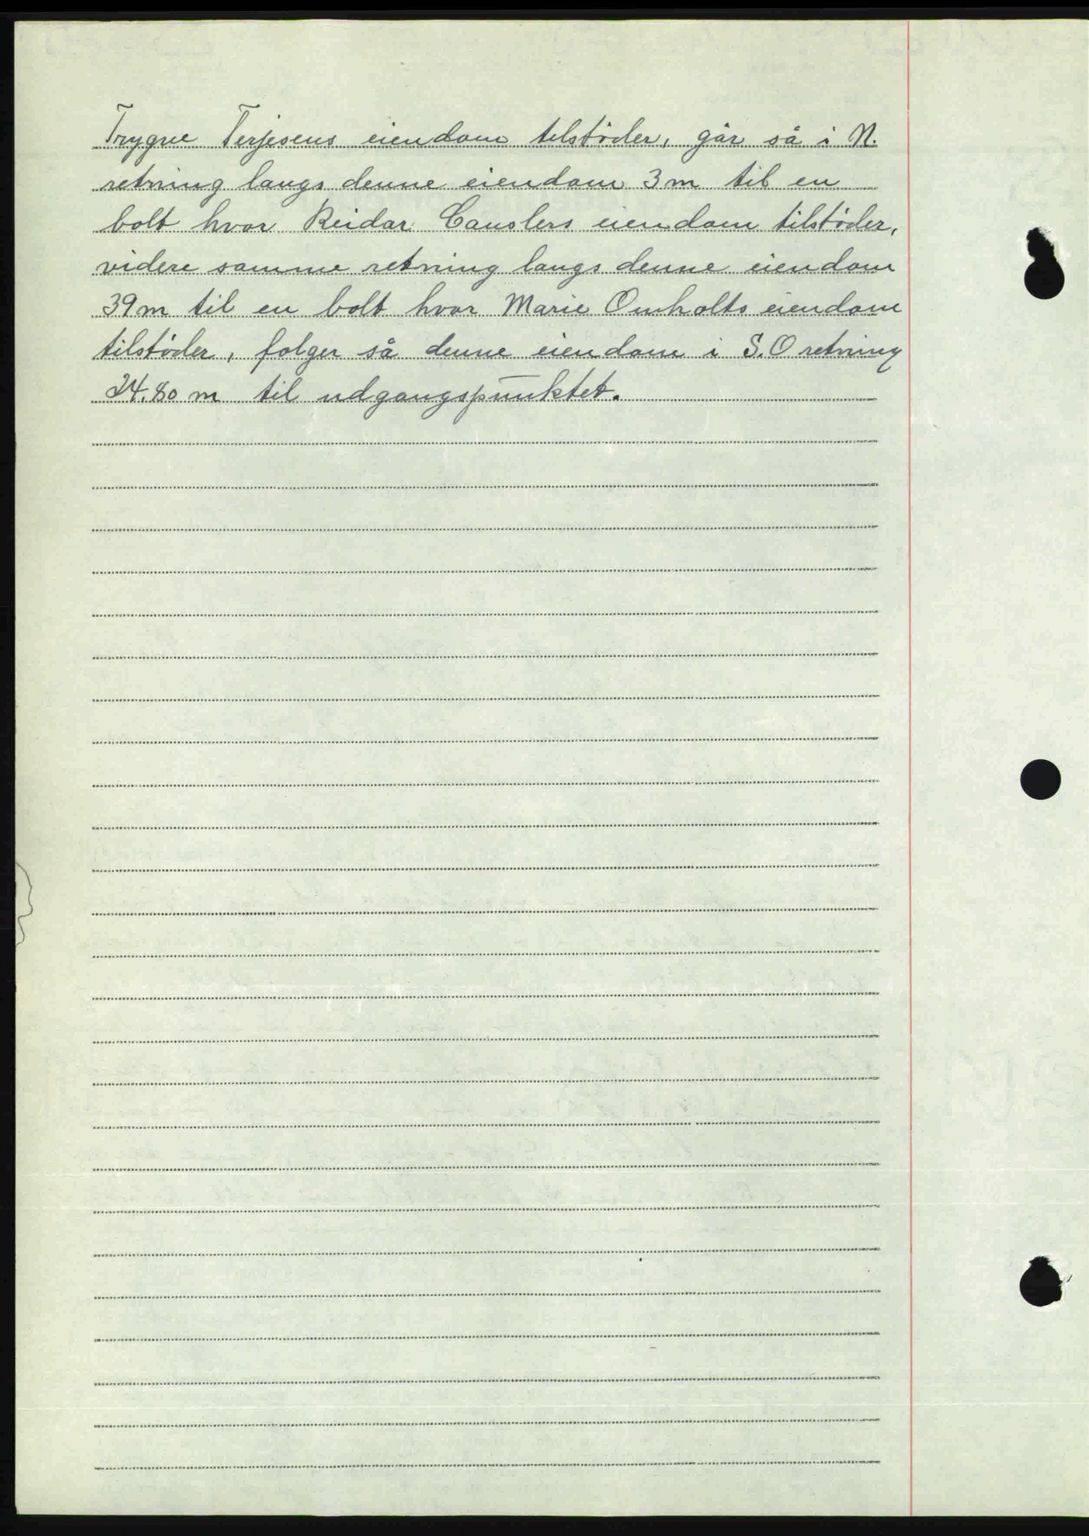 Trygve Terjesens eiendom tilstöder, går så i N.
retning langs denne eiendom 3 m til en
bolt hvor Reidar Causlers eiendom tilstöder,
videre samme retning langs denne eiendom
39 m til en bolt hvor Marie Omholts eiendom
tilstöder, følger så denne eiendom i S.O retning
24.80 m til udgangspunktet.